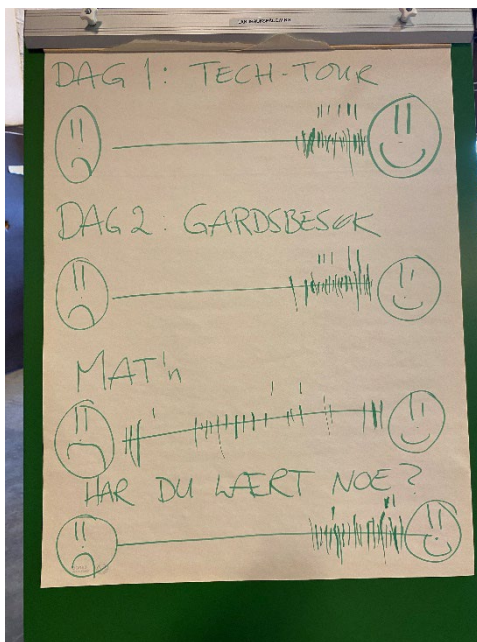 DAG 1: TECH-TOUR
DAG 2: GARDSBESØK
MAT'n
HAR DU LÆRT NOE?